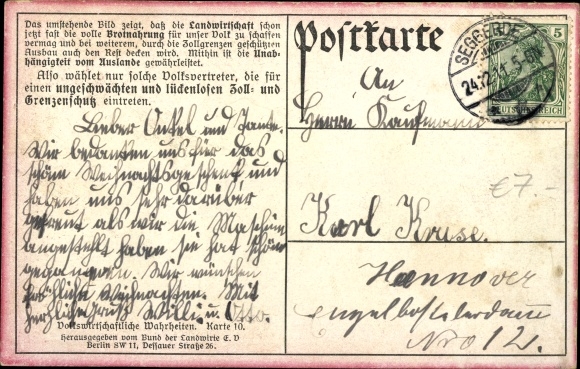 Das umstehende Bild zeigt, daß die Landwirtschaft schon
jetzt fast die volle Brotnahrung für unser Volk zu schaffen
vermag und bei weiterem, durch die Zollgrenzen geschützten
Ausbau auch den Rest decken wird. Mithin ist die Unab-
hängigkeit vom Auslande gewährleistet.
Also wählet nur solche Volksvertreter, die für
einen ungeschwächten und lückenlosen Zoll- und
Grenzenschutz eintreten.
Lieber Onkel und Tante.
Wir bedanken uns für das
schöne Weihnachtsgeschenk und
haben uns sehr darüber
gefreut als wir die Maschine
angestellt haben sie hat schön
gegangen. Wir wünschen
fröhliche Weihnachten. Mit
herzl. Gruß Willi u. Otto.
Volkswirtschaftliche Wahrheiten. Karte 10.
Herausgegeben vom Bund der Landwirte E. V
Berlin SW 11, Dessauer Straße 26.
Postkarte
SEGGERDE
24.12. 5-6
5
DEUTSCHES REICH
An
Herrn Kaufmann
€7.-
Karl Kruse.
Hannover
Engelbosteler damm
Nro 12.